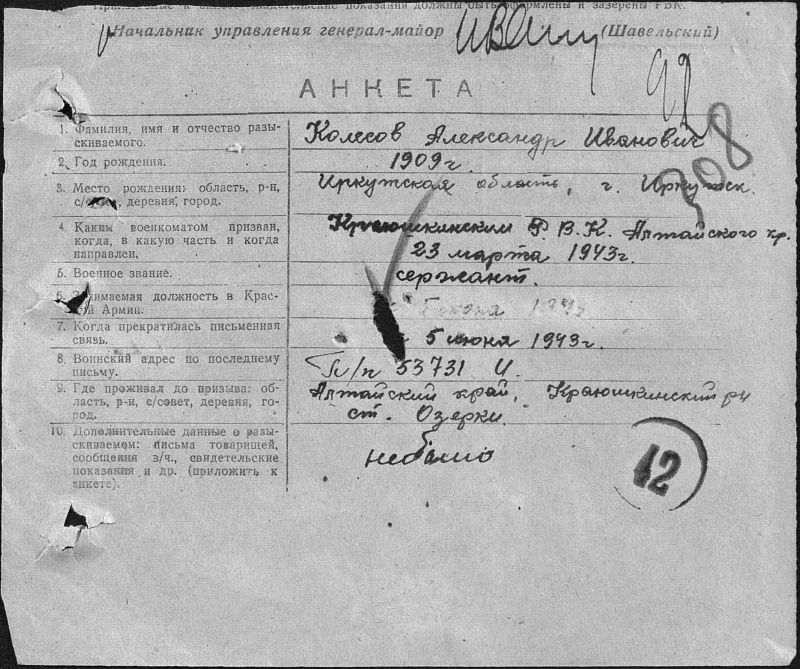 показания должны быть оформлены и заверены РВК.
Начальник управления генерал-майор (Шавельский)
92
АНКЕТА
308
1. Фамилия, имя и отчество разыскиваемого. Колесов Александр Иванович
2. Год рождения. 1909 г.
3. Место рождения: область, р-н, с/совет, деревня, город. Иркутская область, г. Иркутск.
4. Каким военкоматом призван, когда, в какую часть и когда направлен. Краюшкинским Р.В.К. Алтайского кр.
23 марта 1943 г.
5. Военное звание. сержант.
6. Занимаемая должность в Красной Армии.
7. Когда прекратилась письменная связь. 5 июня 1943 г.
8. Воинский адрес по последнему письму. П/п 53731 И.
9. Где проживал до призыва: область, р-н, с/совет, деревня, город. Алтайский край, Краюшкинский р-н
ст. Озерки.
10. Дополнительные данные о разыскиваемом: письма товарищей, сообщения в/ч., свидетельские показания и др. (приложить к анкете). не было
42